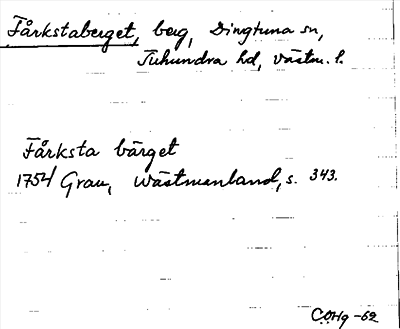 Fårkstaberget, berg, Dingtuna sn,
Tuhundra hd, Västm. l.
Fårksta bärget
1754 Grau, Wästmanland, s. 343.
COHg -62